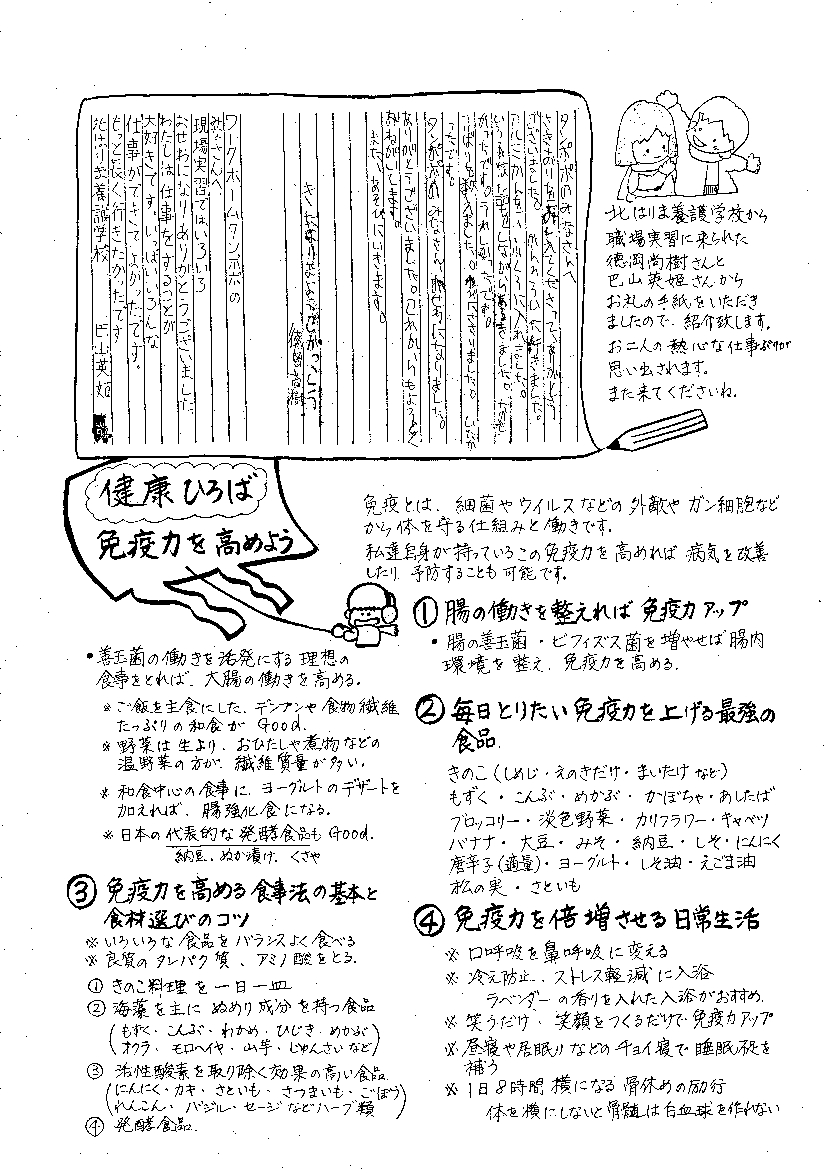 タンポポのみなさんへ
ありがとうございました。これからもよろしく
おねがいします。
また、あそびにいきます。
ワークホームタンポポの
みなさんへ
現場実習ではいろいろ
おせわになりありがとうございました
わたしは仕事をすることが
大好きです。いっぱいいろんな
仕事ができてよかったです。
もっと長く行きたかったです
北はりま養護学校 巴山英姫
北はりま養護学校から
職場実習に来られた
徳岡尚樹さんと
巴山英姫さんから
お礼の手紙をいただき
ましたので、紹介致します。
お二人の熱心な仕事ぶりが
思い出されます。
また来てくださいね。
健康ひろば
免疫力を高めよう
免疫とは、細菌やウイルスなどの外敵やガン細胞など
から体を守る仕組みと働きです。
私達自身が持っているこの免疫力を高めれば病気を改善
したり予防することも可能です。
①腸の働きを整えれば免疫力アップ
・腸の善玉菌・ビフィズス菌を増やせば腸内
環境を整え、免疫力を高める。
・善玉菌の働きを活発にする理想の
食事をとれば、大腸の働きを高める。
※ご飯を主食にした、デンプンや食物繊維
たっぷりの和食が Good.
※野菜は生より、おひたしや煮物などの
温野菜の方が、繊維質量が多い。
※和食中心の食事に、ヨーグルトのデザートを
加えれば、腸強化食になる。
※日本の代表的な発酵食品も Good.
納豆、ぬか漬け、くさや
②毎日とりたい免疫力を上げる最強の
食品.
きのこ(しめじ・えのきだけ・まいたけ など)
もずく・こんぶ・めかぶ・かぼちゃ・あしたば
ブロッコリー・淡色野菜・カリフラワー・キャベツ
バナナ・大豆・みそ・納豆・しそ・にんにく
唐辛子(適量)・ヨーグルト・しそ油・えごま油
松の実・さといも
③免疫力を高める食事法の基本と
食材選びのコツ
※いろいろな食品をバランスよく食べる
※良質のタンパク質、アミノ酸をとる。
①きのこ料理を一日一皿
②海藻を主にぬめり成分を持つ食品
(もずく・こんぶ・わかめ・ひじき・めかぶ
オクラ・モロヘイヤ・山芋・じゅんさいなど)
③活性酸素を取り除く効果の高い食品
(にんにく・カキ・さといも・さつまいも・ごぼう
れんこん・バジル・セージなどハーブ類)
④発酵食品.
④免疫力を倍増させる日常生活
※口呼吸を鼻呼吸に変える
※冷え防止、ストレス軽減に入浴
ラベンダーの香りを入れた入浴がおすすめ.
※笑うだけ・笑顔をつくるだけで免疫力アップ
※昼寝や居眠りなどのチョイ寝で睡眠不足を
補う
※1日8時間横になる骨休めの励行
体を横にしないと骨髄は白血球を作れない